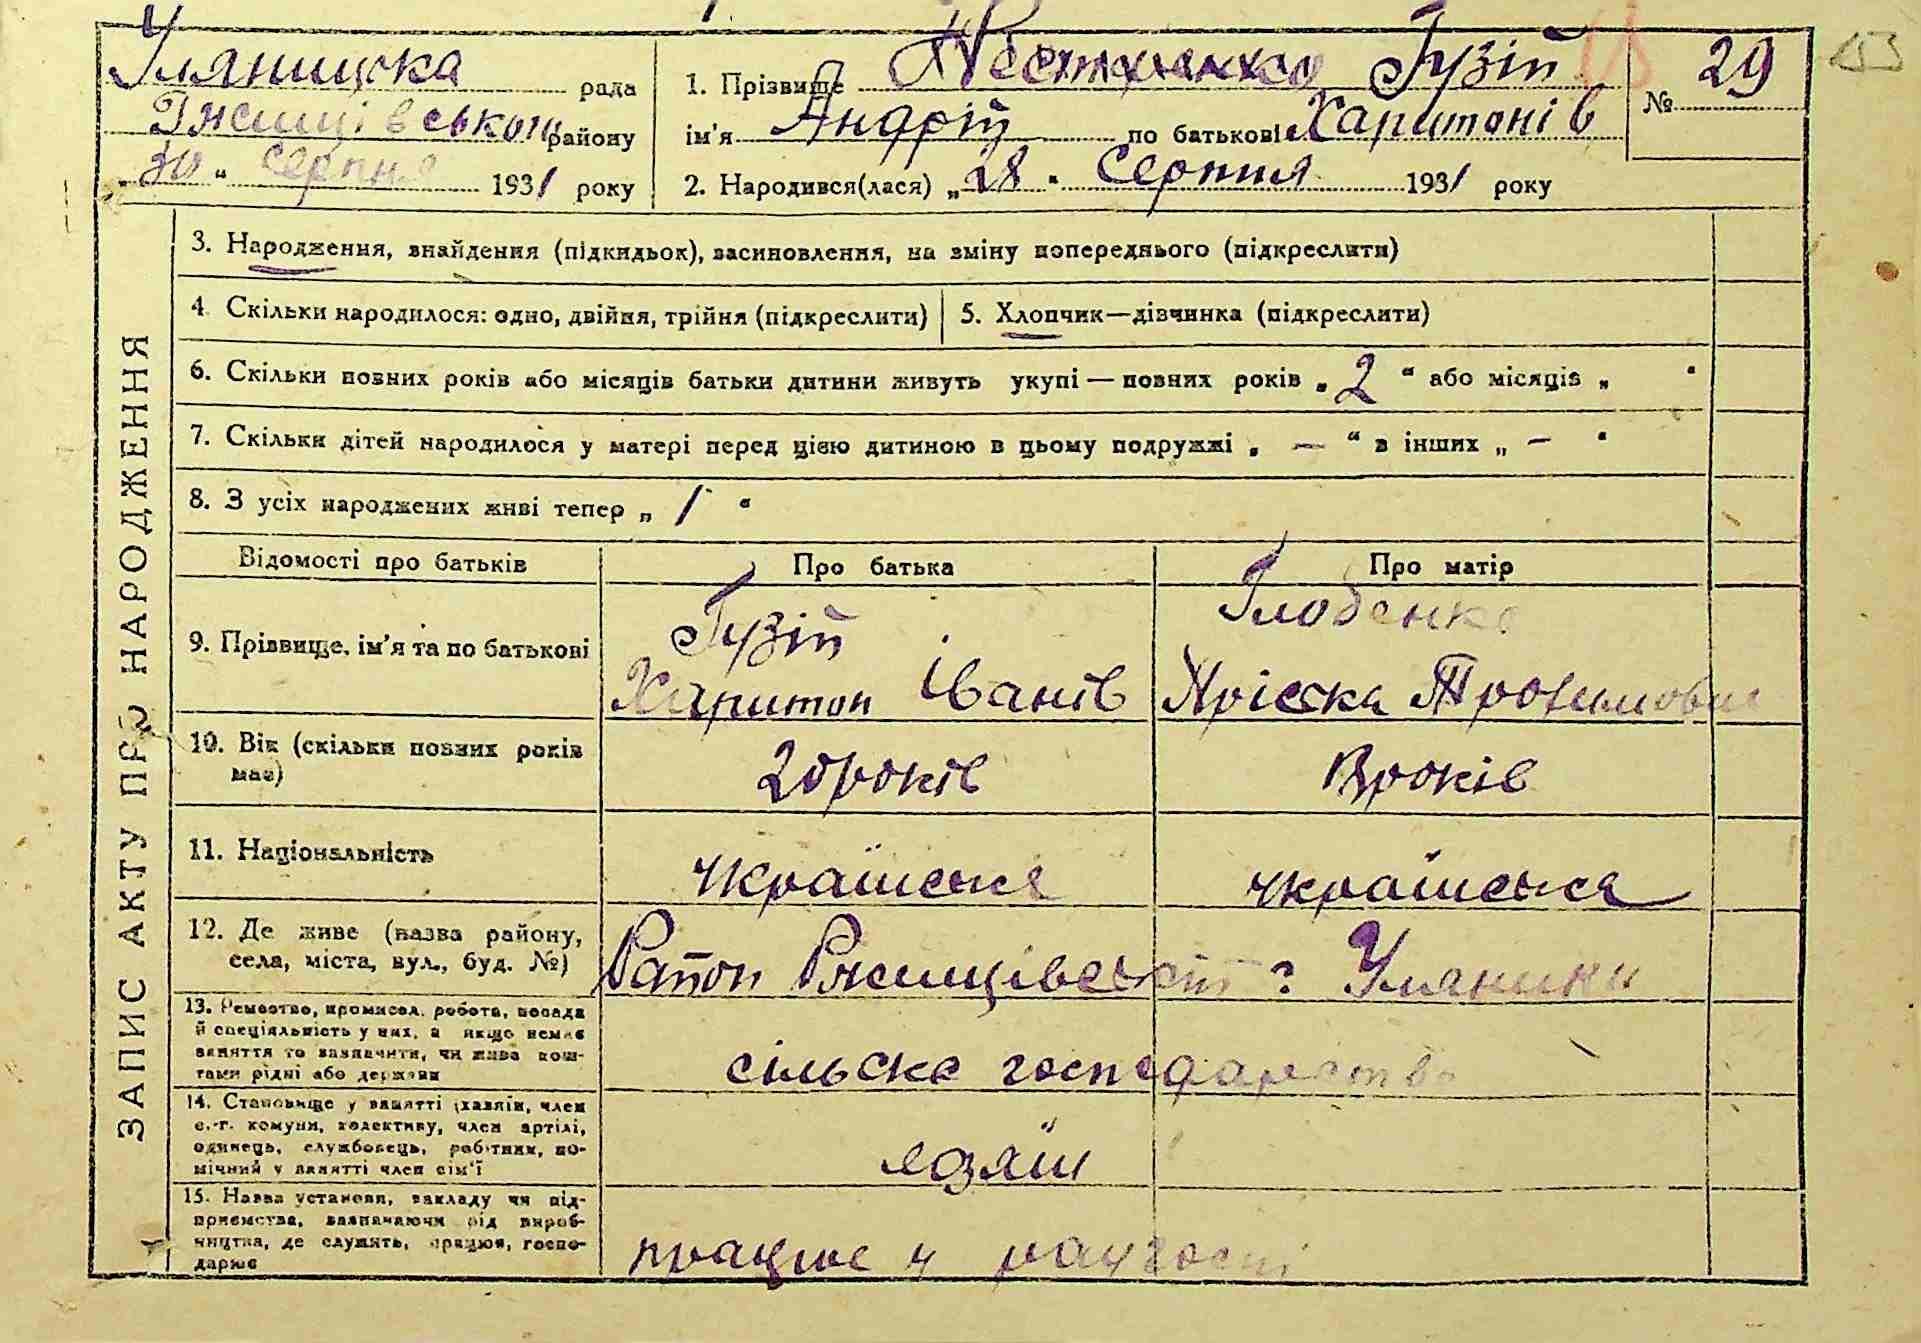 Уляницька рада
Ржищівського району
„30“ Серпня 1931 року
1. Прізвище Нестиренко Гузій
ім'я Андрій по батькові Харитонів
2. Народився(лася) „28“ Серпня 1931 року
№ 29
153
ЗАПИС АКТУ ПРО НАРОДЖЕННЯ
3. Народження, знайдення (підкидьок), засиновлення, на зміну попереднього (підкреслити)
4. Скільки народилося: одно, двійня, трійня (підкреслити)
5. Хлопчик—дівчинка (підкреслити)
6. Скільки повних років або місяців батьки дитини живуть укупі — повних років „2“ або місяців „ “
7. Скільки дітей народилося у матері перед цією дитиною в цьому подружжі „—“ в інших „—“
8. З усіх народжених живі тепер „1“
Відомості про батьків Про батька Про матір
9. Прізвище, ім'я та по батькові
Гузій
Харитон Іванів
Глобенко
Пріська Трохимовна
10. Вік (скільки повних років має)
20 років
років
11. Національність
українська
українська
12. Де живе (назва району, села, міста, вул., буд. №)
Район Ржищівский Уляники
13. Ремество, промисел, робота, посада
й спеціяльність у них, а якщо немає
заняття то зазначити, чи жива кош-
тами рідні або держави
сільске господарство
14. Становище у занятті (хазяїн, член
с.-г. комуни, колективу, член артілі,
одинець, службовець, робітник, по-
мічний у занятті член сім'ї
15. Назва установи, закладу чи під-
приємства, зазначаючи рід вироб-
ництва, де служить, працює, госпо-
дарює
працює у